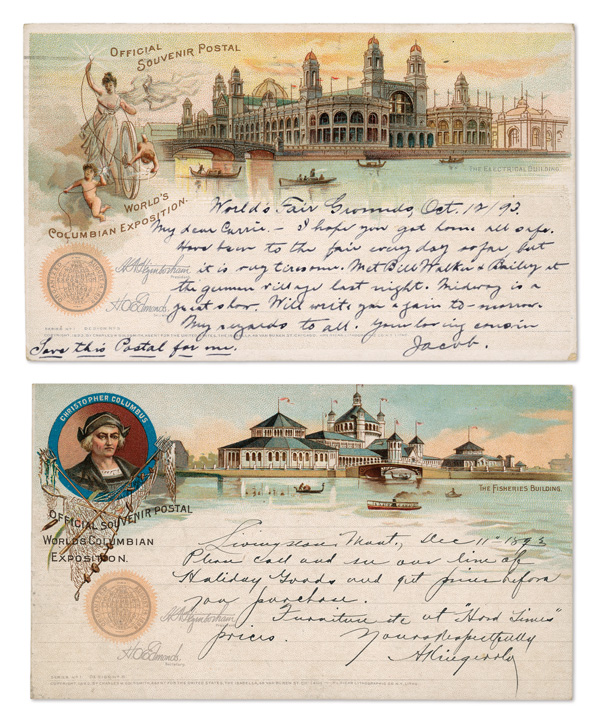 OFFICIAL
SOUVENIR POSTAL
THE ELECTRICAL BUILDING.
WORLD'S
COLUMBIAN EXPOSITION.
World's Fair Grounds, Oct. 12/93.
My dear Carrie. - I hope you got home all safe.
Have been to the fair every day so far but
it is very tiresome. Met Bill Walker & Bailey at
the german village last night. Midway is a
great show. Will write you again to-morrow.
My regards to all. Your loving cousin
Jacob.
Save this Postal for me.
SERIES No 1
CHRISTOPHER COLUMBUS
THE FISHERIES BUILDING.
OFFICIAL SOUVENIR POSTAL
WORLD'S COLUMBIAN
EXPOSITION.
Livingston Mont., Dec 11th 1893
Please call and see our line of
Holiday Goods and get prices before
you purchase.
Furniture etc at "Hard Times"
prices. Yours Respectfully
SERIES No 1